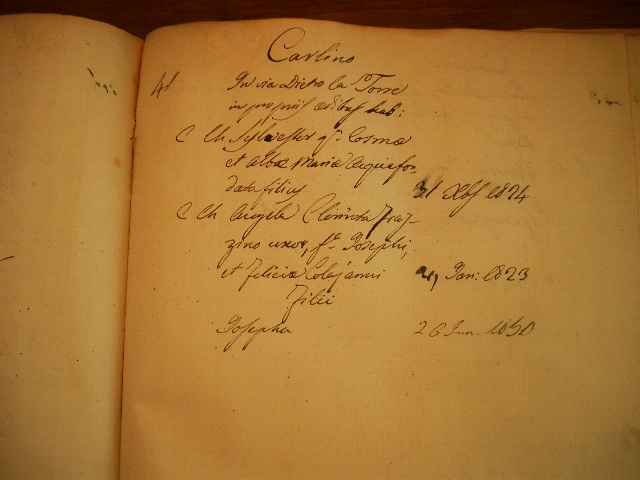 Carlino
41 In via Dietro la Torre
in propriis aedibus hab:
C Ch Sylvester q.m Cosmae
et Albae Mariae Acquafon-
data filius 31 Xbs 1824
C Ch Angela Clorinta Fra-
zino uxor, f.a Josephi,
et Feliciae Colajanni Jan: 1823
Filii
Josepha 26 Jun. 1850